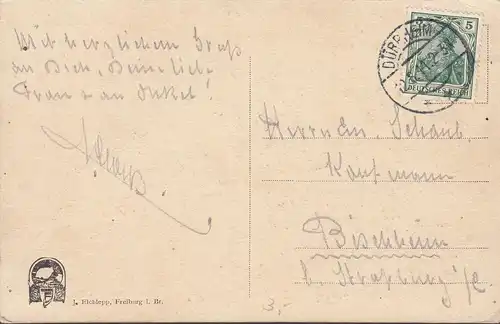 Mit herzlichem Gruß
an Dich, Deine liebe
Frau & an Onkel!
DÜRRHEIM
5
DEUTSCHES REICH
Herrn Em. Schaub
Kaufmann
Bischheim
b. Straßburg i/E
J. Elchlepp, Freiburg i. Br.
3,-